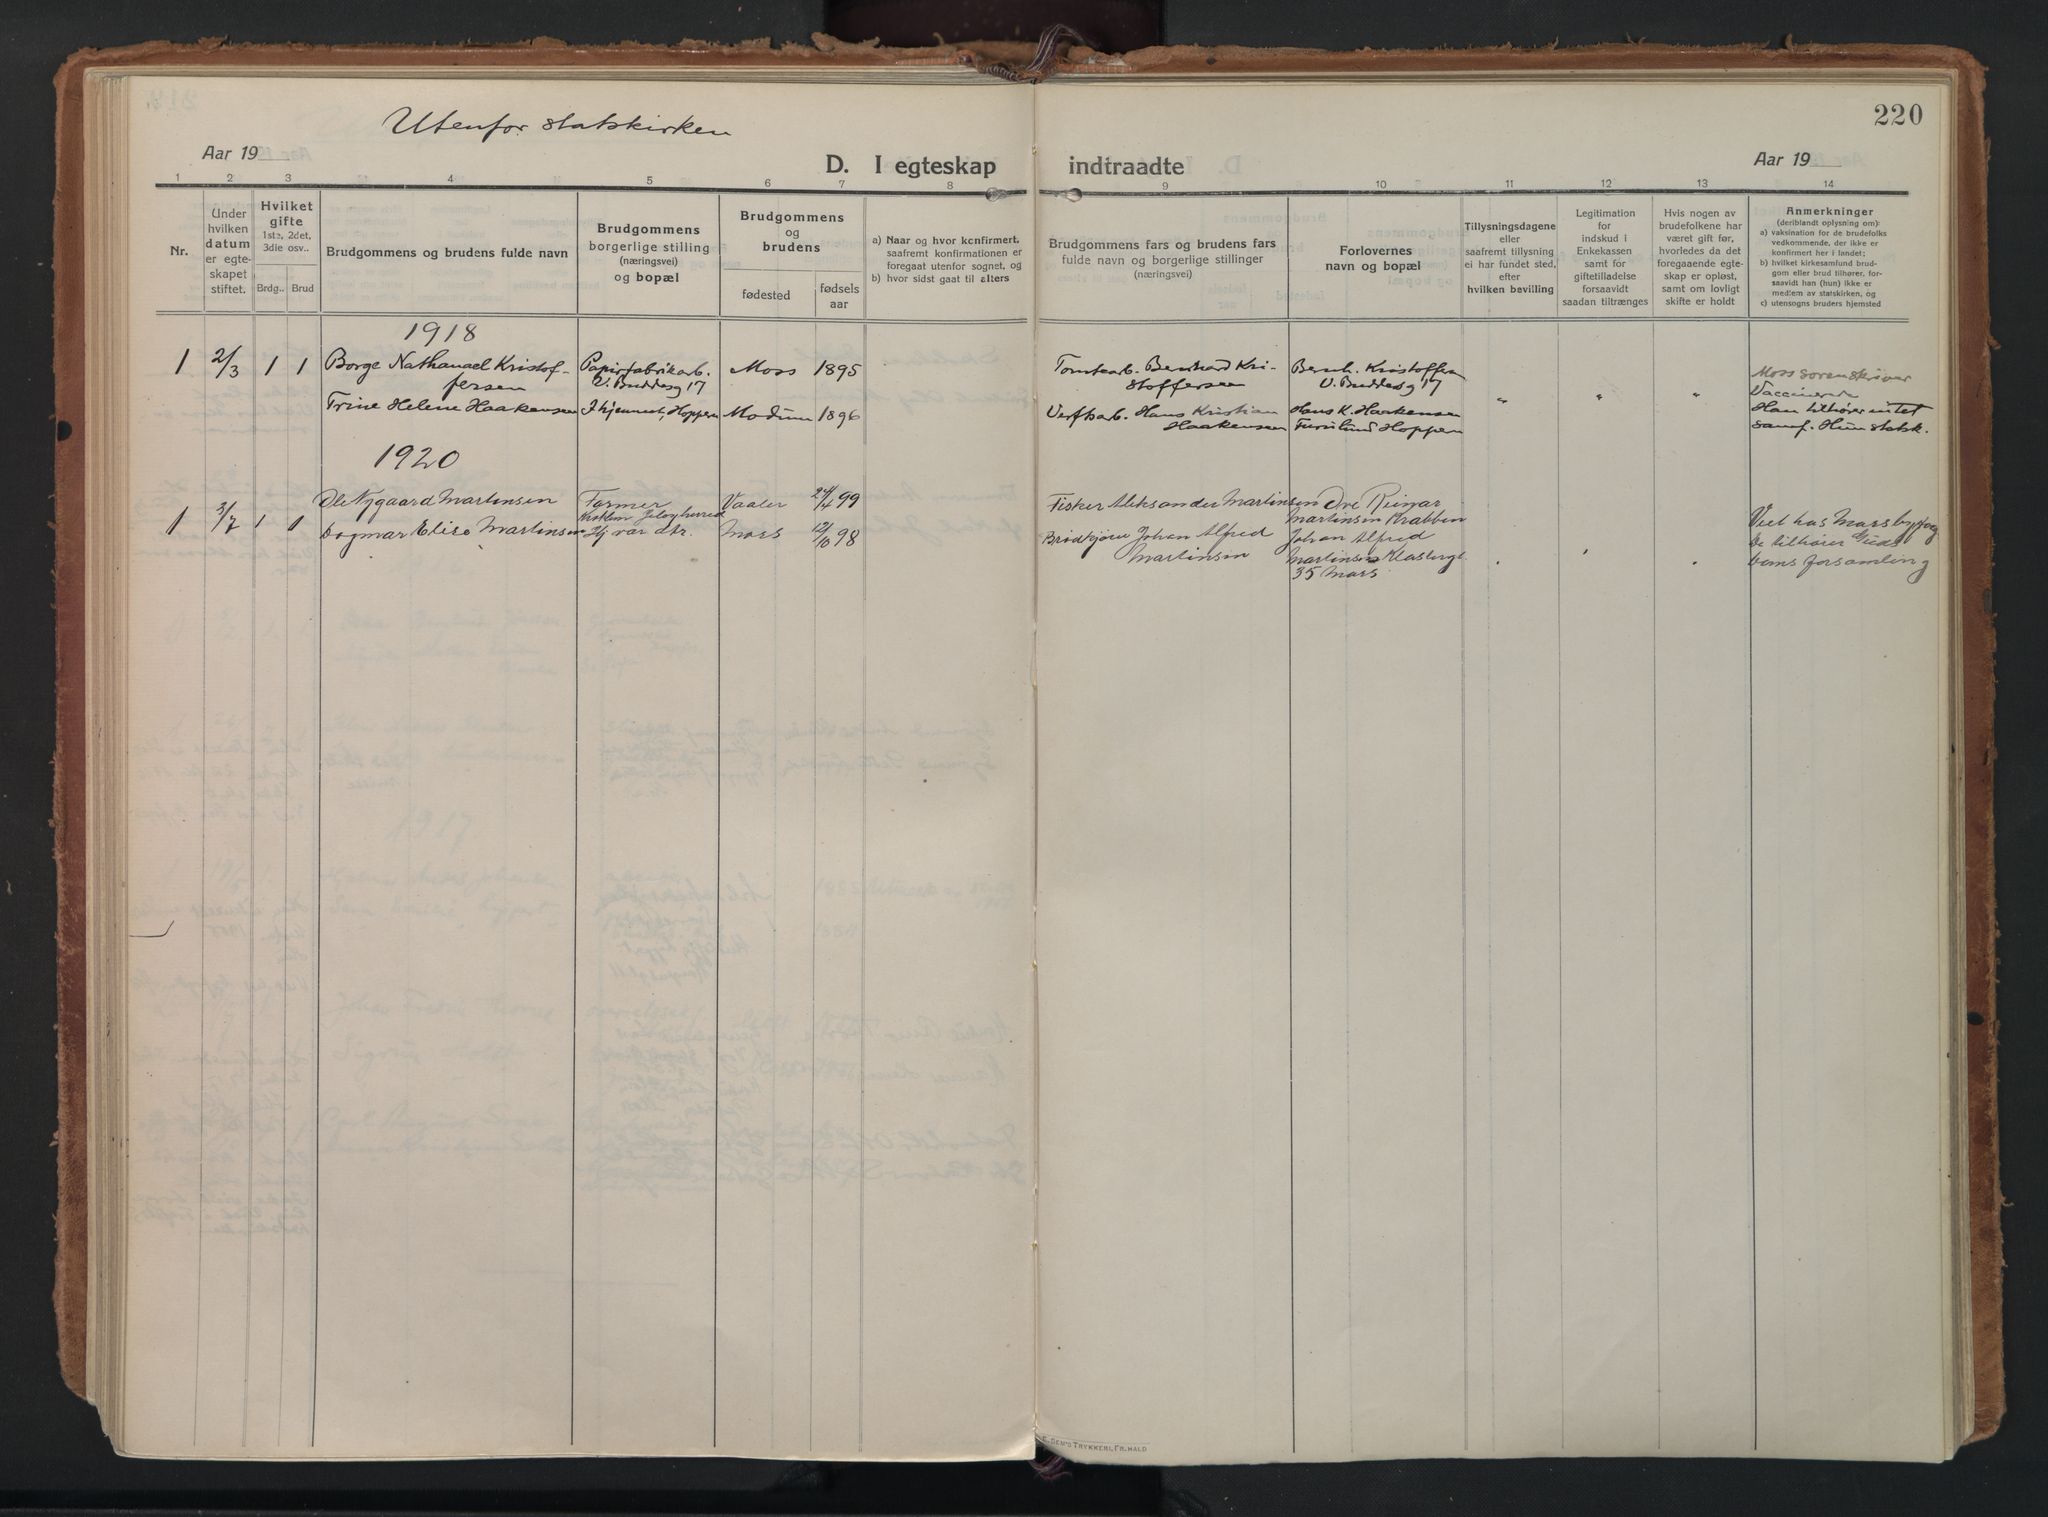 Utenfor statskirken
220
Aar 19
D. I egteskap indtraadte
Aar 19
1 2 3 4 5 6 7 8 9 10 11 12 13 14
Nr.
Under
hvilken
datum
er egte-
skapet
stiftet.
Hvilket
gifte
1ste, 2det,
3die osv..
Brdg..
Brud
Brudgommens og brudens fulde navn
Brudgommens
borgerlige stilling
(næringsvei)
og bopæl
Brudgommens
og
brudens
fødested
fødsels
aar
a) Naar og hvor konfirmert,
saafremt konfirmationen er
foregaat utenfor sognet, og
b) hvor sidst gaat til alters
Brudgommens fars og brudens fars
fulde navn og borgerlige stillinger
(næringsvei)
Forlovernes
navn og bopæl
Tillysningsdagene
eller
saafremt tillysning
ei har fundet sted,
efter
hvilken bevilling
Legitimation
for
indskud i
Enkekassen
samt for
giftetilladelse
forsaavidt
saadan tiltrænges
Hvis nogen av
brudefolkene har
været gift før,
hvorledes da det
foregaaende egte-
skap er opløst,
samt om lovligt
skifte er holdt
Anmerkninger
(deriblandt oplysning om):
a) vaksination for de brudefolks
vedkommende, der ikke er
konfirmert her i landet;
b) hvilket kirkesamfund brud-
gom eller brud tilhører, for-
saavidt han (hun) ikke er
medlem av statskirken, og
c) utensogns bruders hjemsted
1918
1 2/3 1 1 Borge Nathanael Kristof-
fersen
Papirfabrikarb.
V. Buddesg 17
Moss 1895
Tomtearb. Bernhard Kri-
stoffersen
Bernh. Kristoffersen
V. Buddesg 17
Moss sorenskriver
Vaccinerede
Trine Helene Haakensen
I hjemmet, Hoppern
Modum 1896
Verftsarb. Hans Kristian
Haakensen
Hans K. Haakensen
Furulund Hoppern
" " "
Han tilhører intet
samf. Hun statsk.
1920
1 3/7 1 1 Ole Nygaard Martinsen
Farmer
Jeløy herred
Vaaler 24/4 99
Fisker Aleksander Martinsen
Ove Reimar
Martinsen Krabben
Dagmar Elise Martinsen
Hj vær. dtr.
Moss 12/10 98
Brødkjører Johan Alfred
Martinsen
Johan Alfred
Martinsen
35 Moss
Viet hos Moss byfog
De tilhører Guds
forsamling
E. SEM'S TRYKKERI, FR.HALD